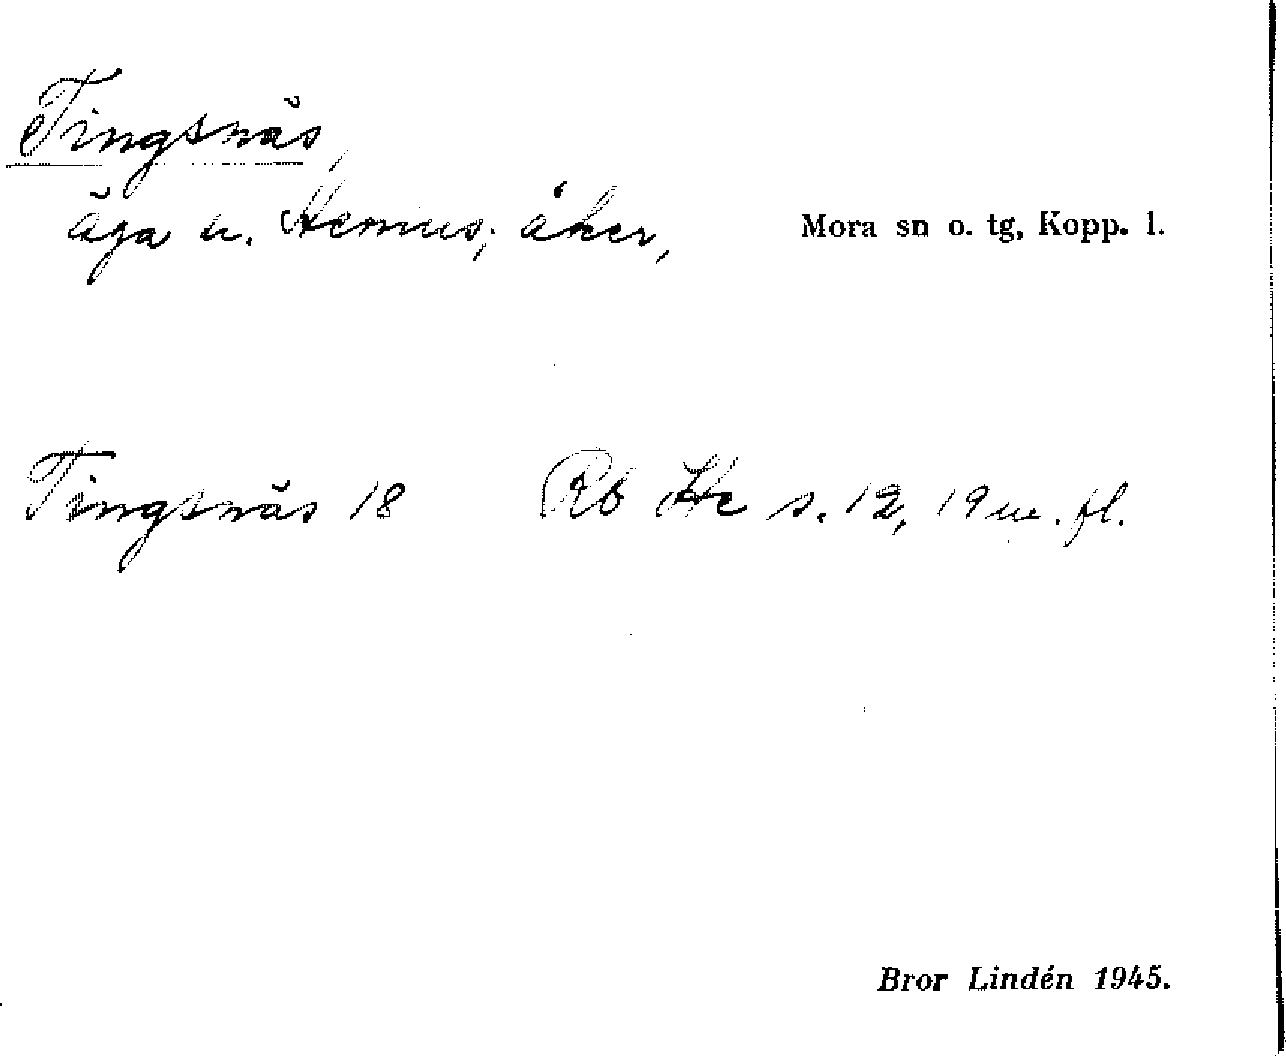 Tingsnäs,
äga u. Hemus; åker, Mora sn o. tg, Kopp. l.
Tingsnäs 18 Rb He s. 12, 19 m. fl.
Bror Lindén 1945.